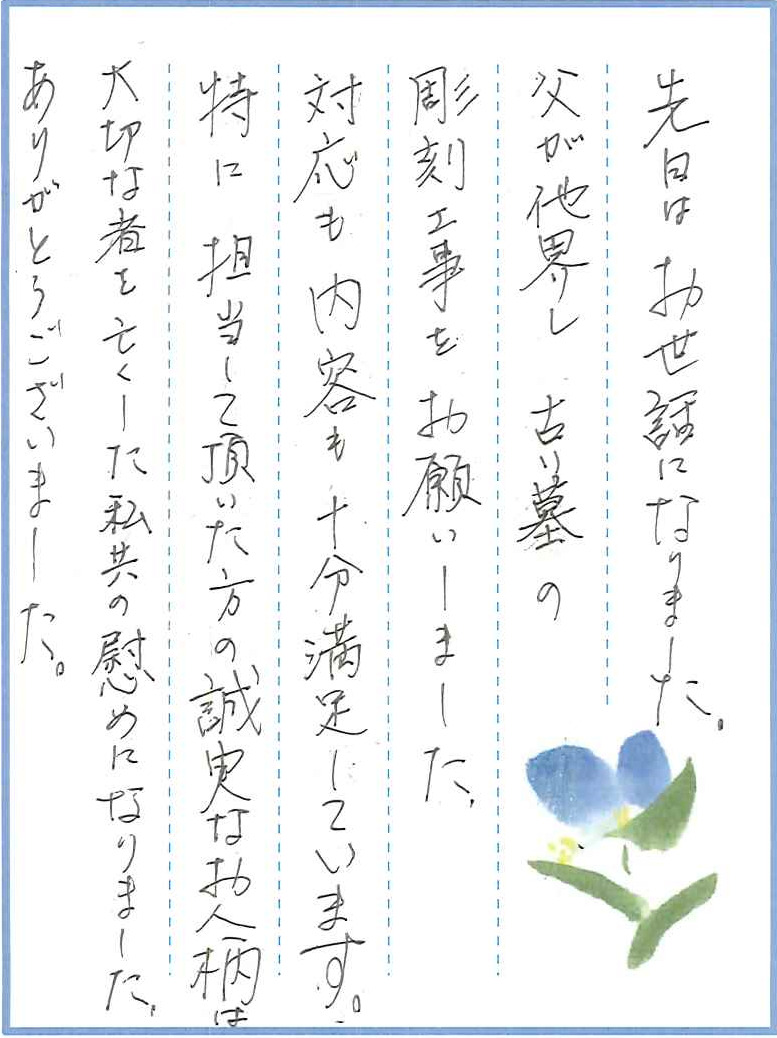 先日は お世話になりました。
父が他界し 古い墓の
彫刻工事を お願いしました。
対応も 内容も 十分満足しています。
特に 担当して頂いた方の誠実なお人柄は
大切な者を亡くした私共の慰めになりました。
ありがとうございました。